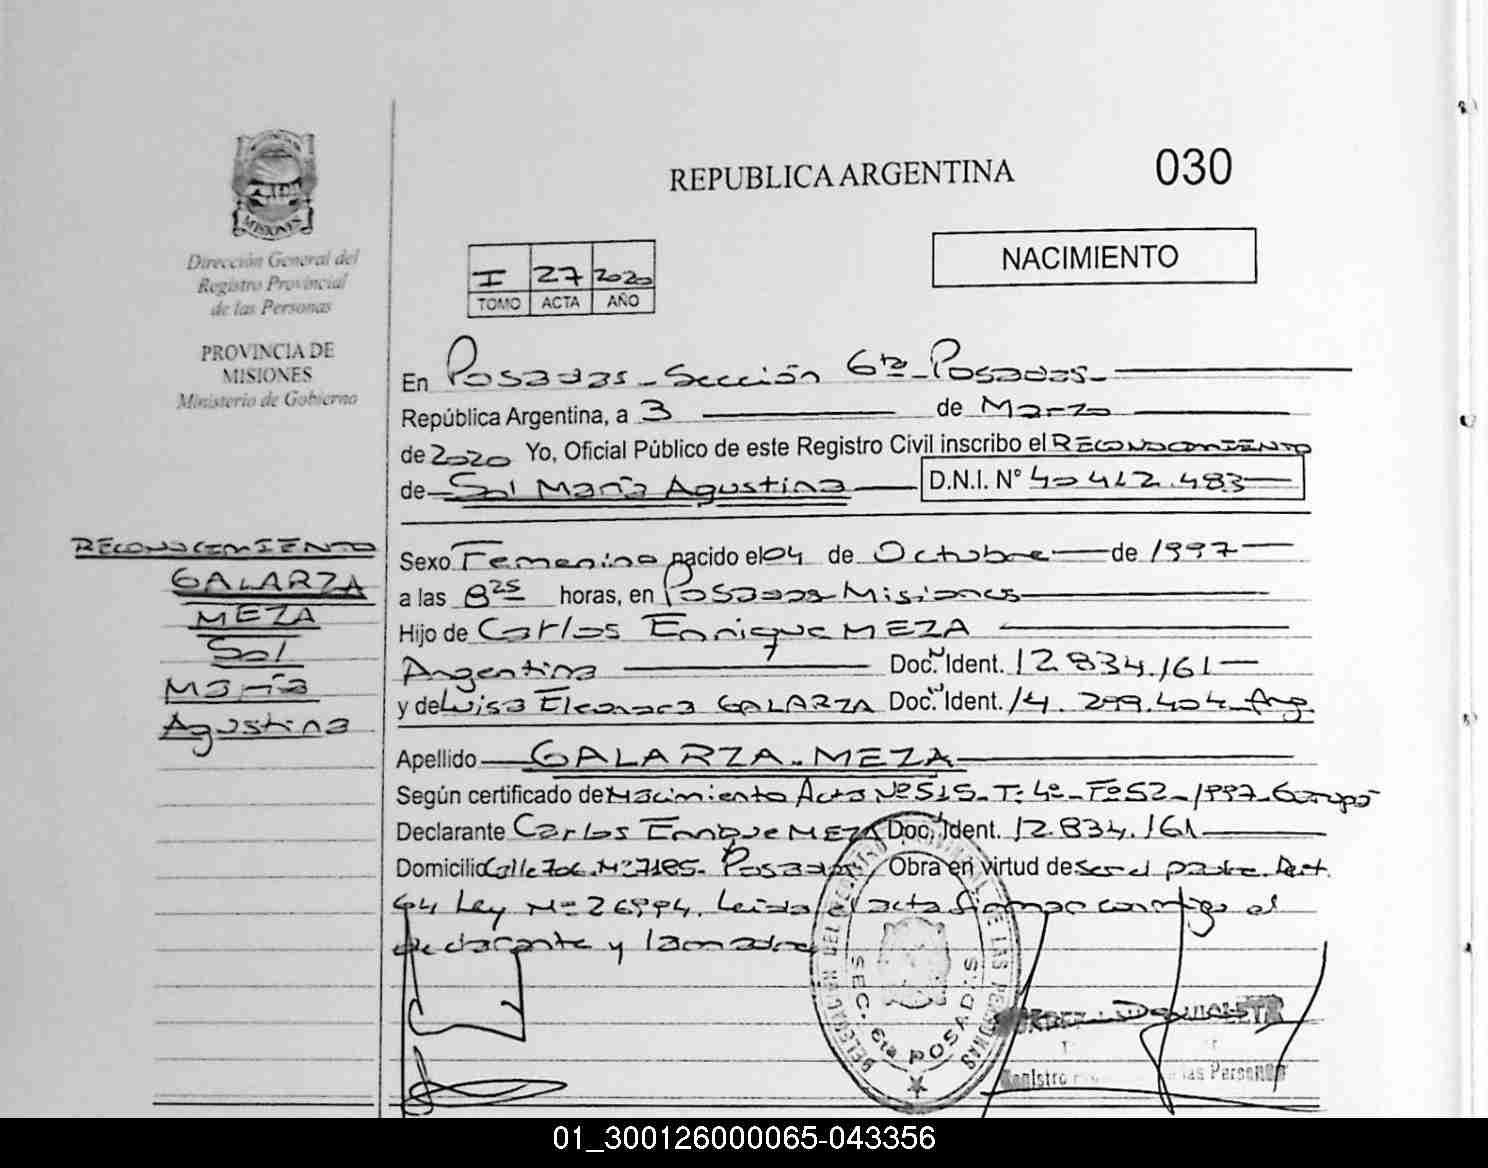 REPUBLICA ARGENTINA
030
MISIONES
Dirección General del
Registro Provincial
de las Personas
PROVINCIA DE
MISIONES
Ministerio de Gobierno
I 27 2020
TOMO ACTA AÑO
NACIMIENTO
En Posadas - Sección 6ta - Posadas -
República Argentina, a 3 de Marzo
de 2020 Yo, Oficial Público de este Registro Civil inscribo el RECONOCIMIENTO
de Sol María Agustina D.N.I. N° 40412.483
RECONOCIMIENTO
GALARZA
MEZA
Sol
María
Agustina
Sexo Femenino nacido el 04 de Octubre de 1997
a las 8 25 horas, en Posadas Misiones
Hijo de Carlos Enrique MEZA
Argentina Doc. Ident. 12.834.161
y de Luisa Eleonora GALARZA Doc. Ident. 14.299.404 Arg.
Apellido GALARZA - MEZA
Según certificado de Nacimiento Acta Nº 515 - T: 4º - Fº 52 - 1997 - Garupá
Declarante Carlos Enrique MEZA Doc. Ident. 12.834.161
Domicilio Calle Nº 7185 - Posadas Obra en virtud de ser el padre. Art.
64 Ley Nº 26994. Leida el acta firman conmigo el
declarante y la madre
DELEGACIÓN DEL REGISTRO PROVINCIAL DE LAS PERSONAS
SEC. 6ta POSADAS
Registro las Personas
01_300126000065-043356